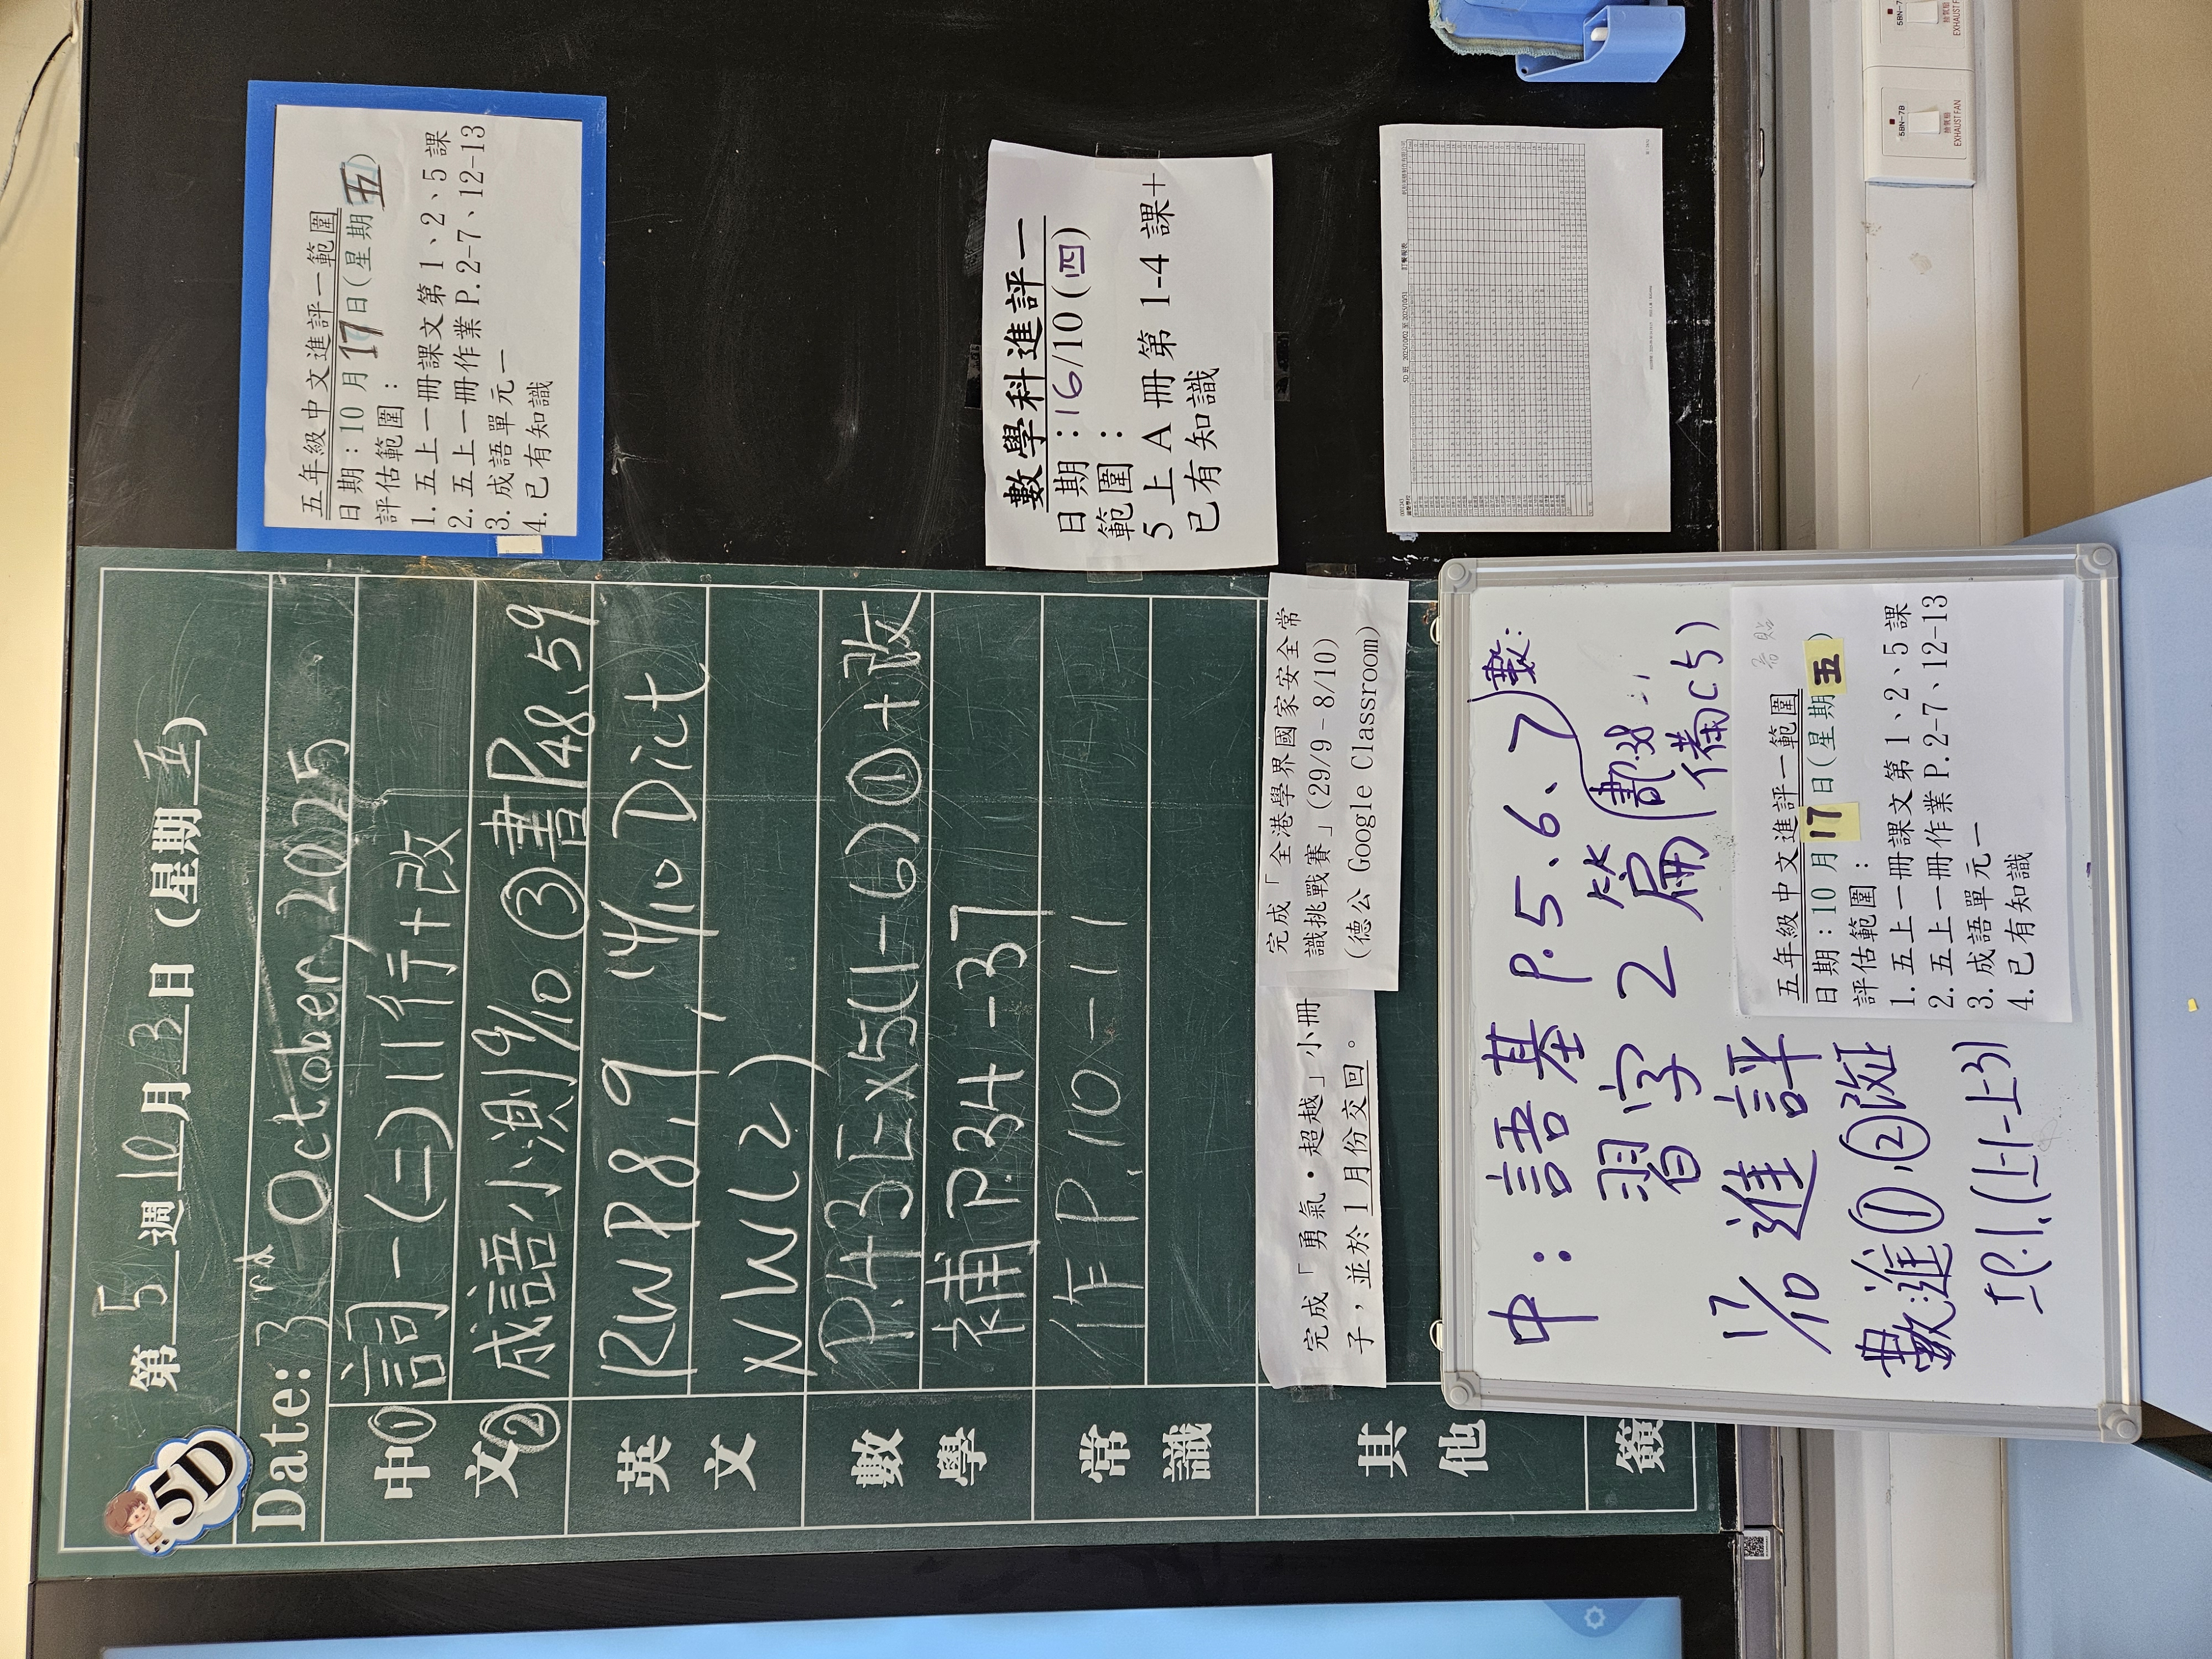 5D
第5週10月3日(星期五)
Date: 3rd October, 2025
中文
① 詞一(二)11行+改
② 成語小測9/10 ③書P48、59
英文
RWP8,9, 14/10 Dict
NW(2)
數學
P.43Ex5(1-6)①+改
補P.34-37
常識
作P.10-11
其他
完成「勇氣・超越」小冊
子，並於1月份交回。
完成「全港學界國家安全常
識挑戰賽」(29/9-8/10)
(德公 Google Classroom)
簽
五年級中文進評一範圍
日期：10月17日(星期五)
評估範圍：
1.五上一冊課文第1、2、5課
2.五上一冊作業P.2-7、12-13
3.成語單元一
4.已有知識
數學科進評一
日期：16/10(四)
範圍：
5上A冊第1-4課+
已有知識
5D 班 2025/10/02 至 2025/10/31 訂餐報表
中：語基P.5、6、7
習字2篇
17/10 進評
數:進①,②改
工P.1(上1-上3)
數:
書P.38
備C5)
五年級中文進評一範圍
日期：10月17日(星期五)
評估範圍：
1.五上一冊課文第1、2、5課
2.五上一冊作業P.2-7、12-13
3.成語單元一
4.已有知識
58N-7B
抽氣扇
EXHAUST FAN
抽氣扇
EXHAUST FAN